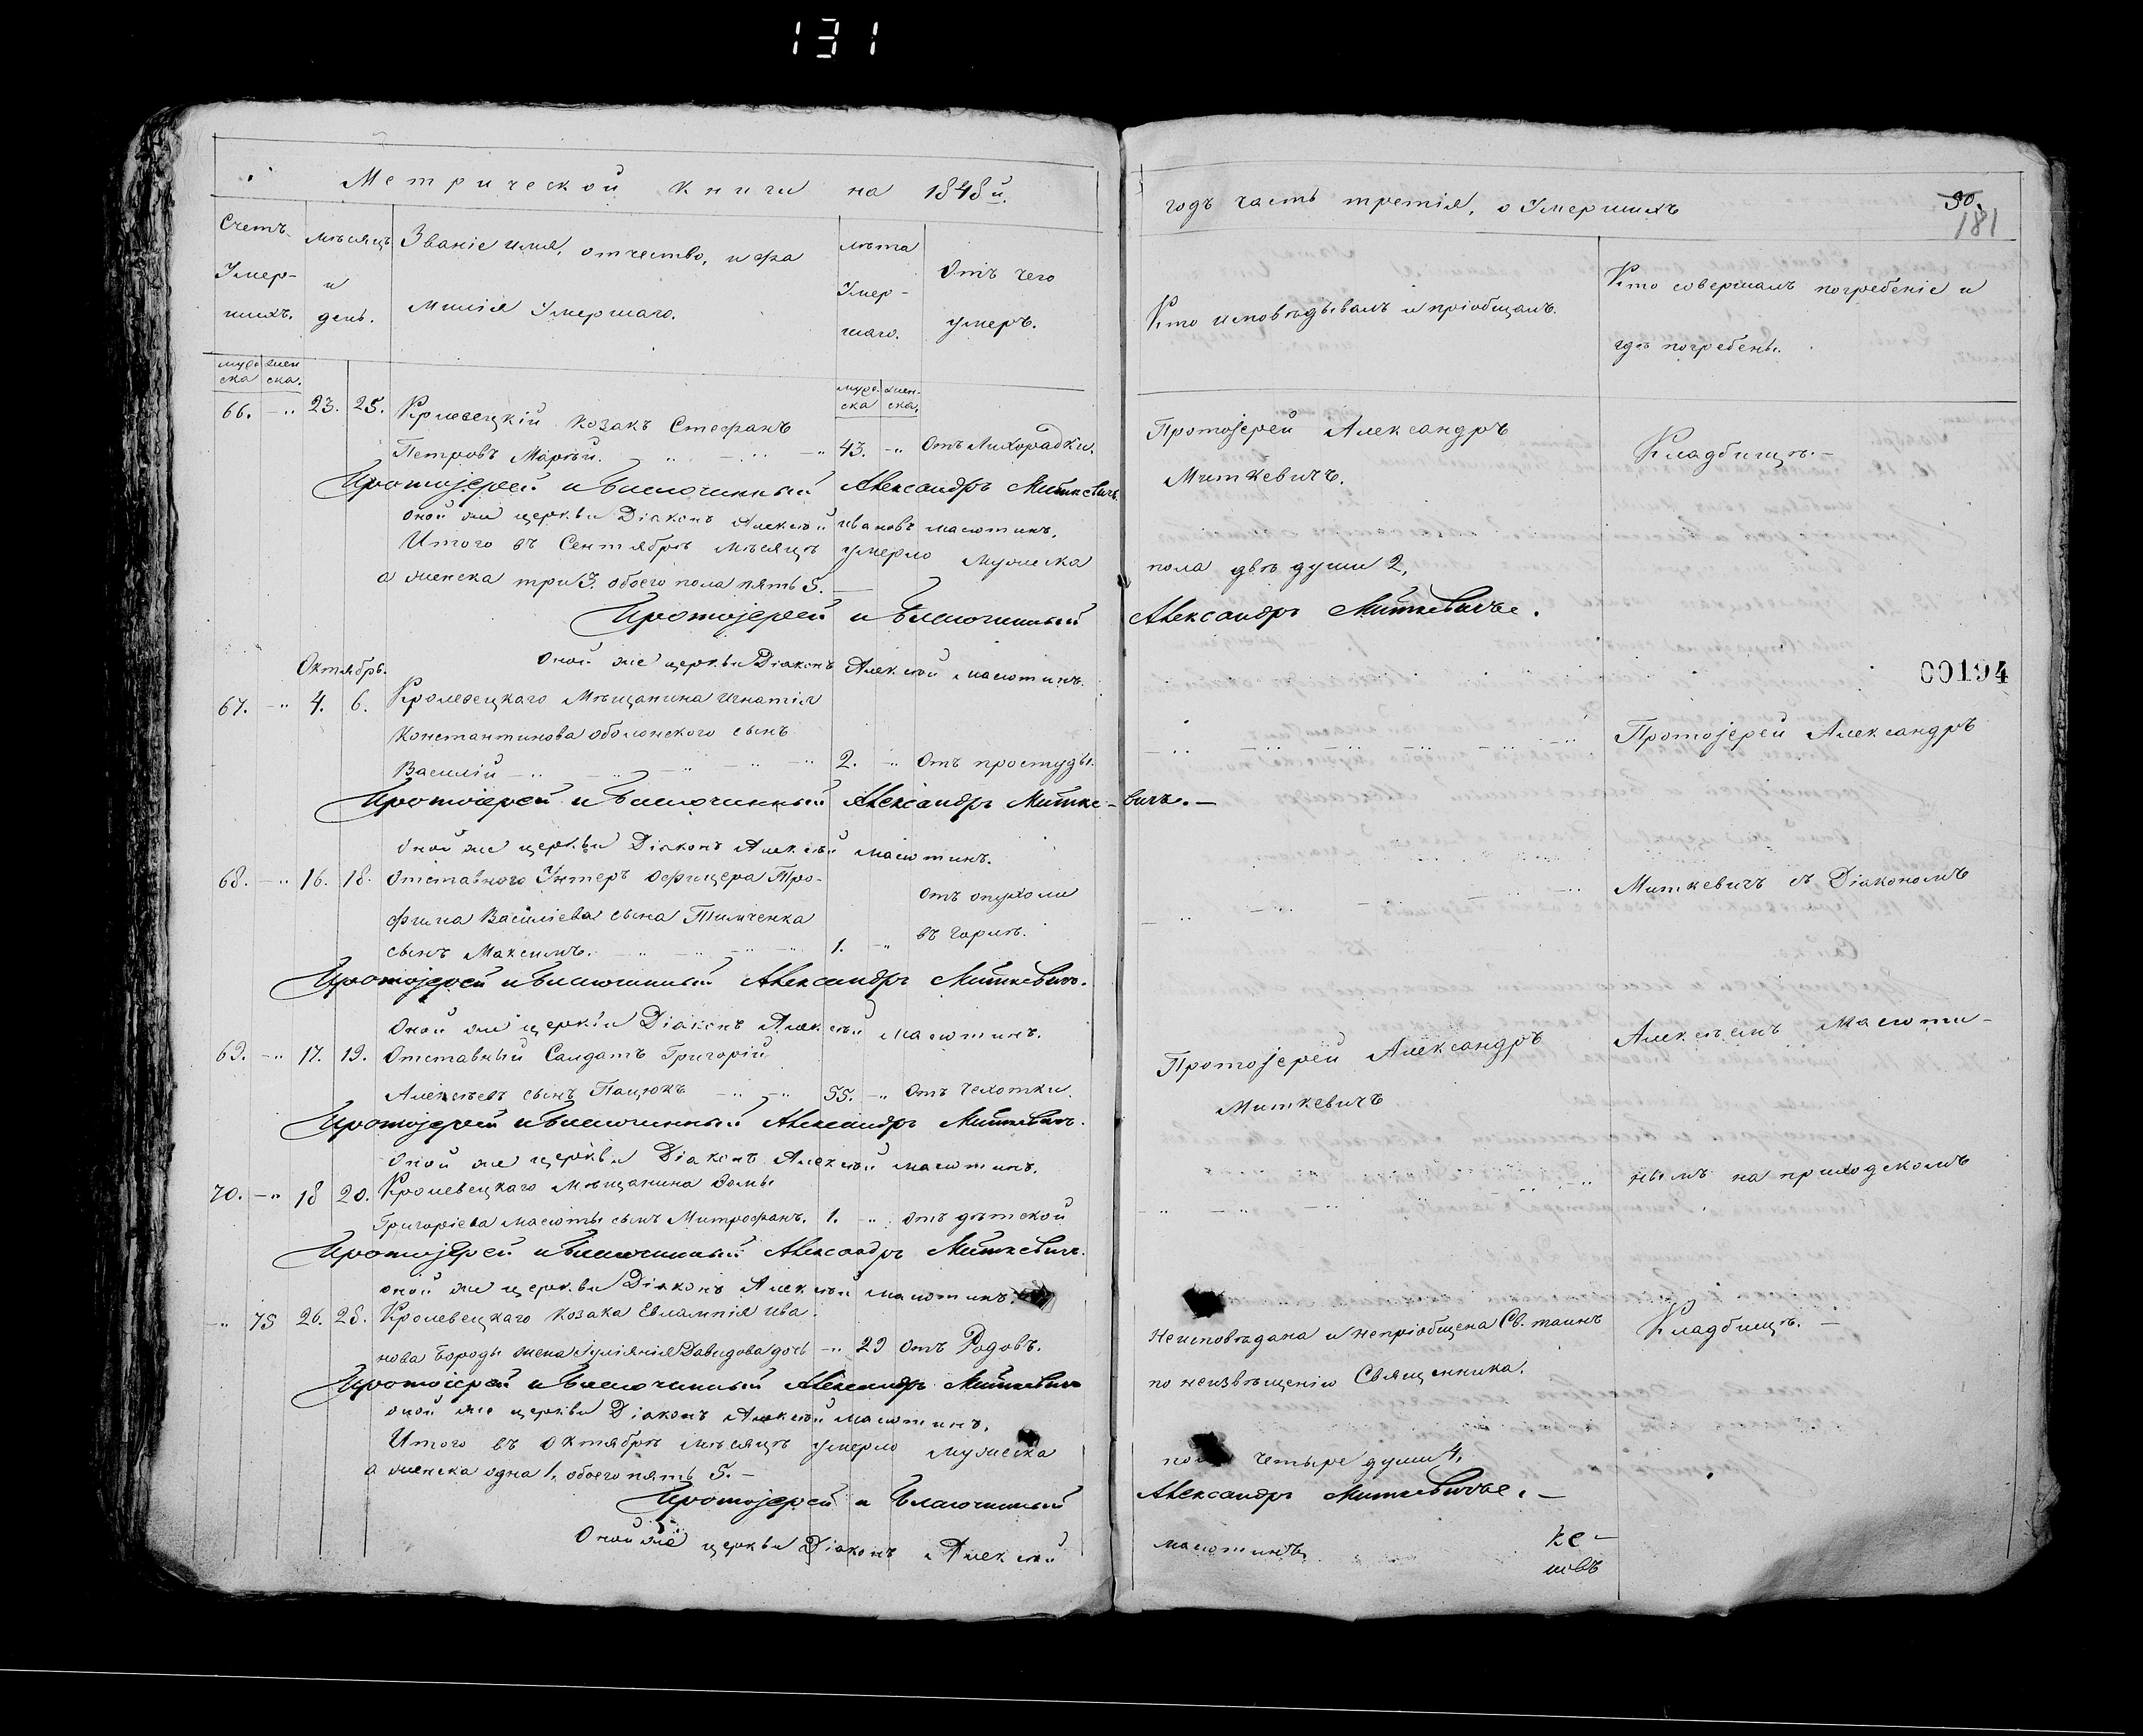 131
Метрической книги на 1848й.
Счетъ Умер- шихъ.
Мѣсяцъ и день.
Званіе имя, отчество, и фа
милія Умершаго.
лѣта Умер- шаго.
Отъ чего умеръ.
муж ска
жен ска.
муже. ска
жен- ска.
66. 23. 25. Кролевецкій козакъ Стефанъ
Петровъ 43. Отъ Лихорадки.
Протоіерей и Благочинный Александръ Миткевичъ.
оной же церкви Діаконъ Алексѣй Ивановъ Масютинъ.
Итого въ Сентябрѣ мѣсяцѣ умерло мужеска
а женска три 3. обоего пола пять 5.
Протоіерей и Благочинный
Оной же церкви Діаконъ Алексѣй Масютинъ.
Октябрь.
67. 4. 6. Кролевецкаго Мѣщанина Игнатія
Константинова оболонского сынъ
Василій 2. Отъ простуды.
Протоіерей и Благочинный Александръ Миткевичъ.
Оной же церкви Діаконъ Алексѣй Масютинъ.
68. 16. 18. Отставного Унтеръ Офицера Тро-
фима Василіева сына Тимченка
сынъ Максимъ. 1. отъ опухоли въ горлѣ.
Протоіерей и Благочинный Александръ Миткевичъ.
Оной же церкви Діаконъ Алексѣй Масютинъ.
69. 17. 19. Отставный Салдатъ Григорій
Алексѣевъ сынъ Пацюкъ 55. Отъ Чехотки.
Протоіерей и Благочинный Александръ Миткевичъ.
Оной же церкви Діаконъ Алексѣй Масютинъ.
70. 18 20. Кролевецкаго Мѣщанина Фомы
Григоріева Масюты сынъ Митрофанъ. 1. отъ дѣтской
Протоіерей и Благочинный Александръ Миткевичъ.
оной же церкви Діаконъ Алексѣй Масютинъ.
75 26. 28. Кролевецкаго козака Евлампія Ива
нова Бороды жена Іуліянія Давидова дочь 29 отъ Родовъ.
Протоіерей и Благочинный Александръ Миткевичъ
оной же церкви Діаконъ Алексѣй Масютинъ.
Итого въ Октябрѣ мѣсяцѣ умерло мужеска
а женска одна 1, обоего пять 5.
Протоіерей и Благочинный
Оной же церкви Діаконъ Алексѣй
годъ часть третія, о Умершихъ
30.
181
Кто исповѣдывалъ и пріобщалъ.
Кто совершалъ погребеніе и
гдѣ погребены.
Протоіерей Александръ
Миткевичъ.
Кладбищѣ.
пола двѣ души 2,
Александръ Миткевичъ.
00194
Протоіерей Александръ
Миткевичъ съ Діакономъ
Протоіерей Александръ
Миткевичъ
Алексѣемъ Масюти-
нымъ на приходскомъ
Неисповѣдана и непріобщена Св. таинъ
по неизвѣщенію Священника.
Кладбищѣ.
четыре души 4,
Александръ Миткевичъ.
Масютинъ.